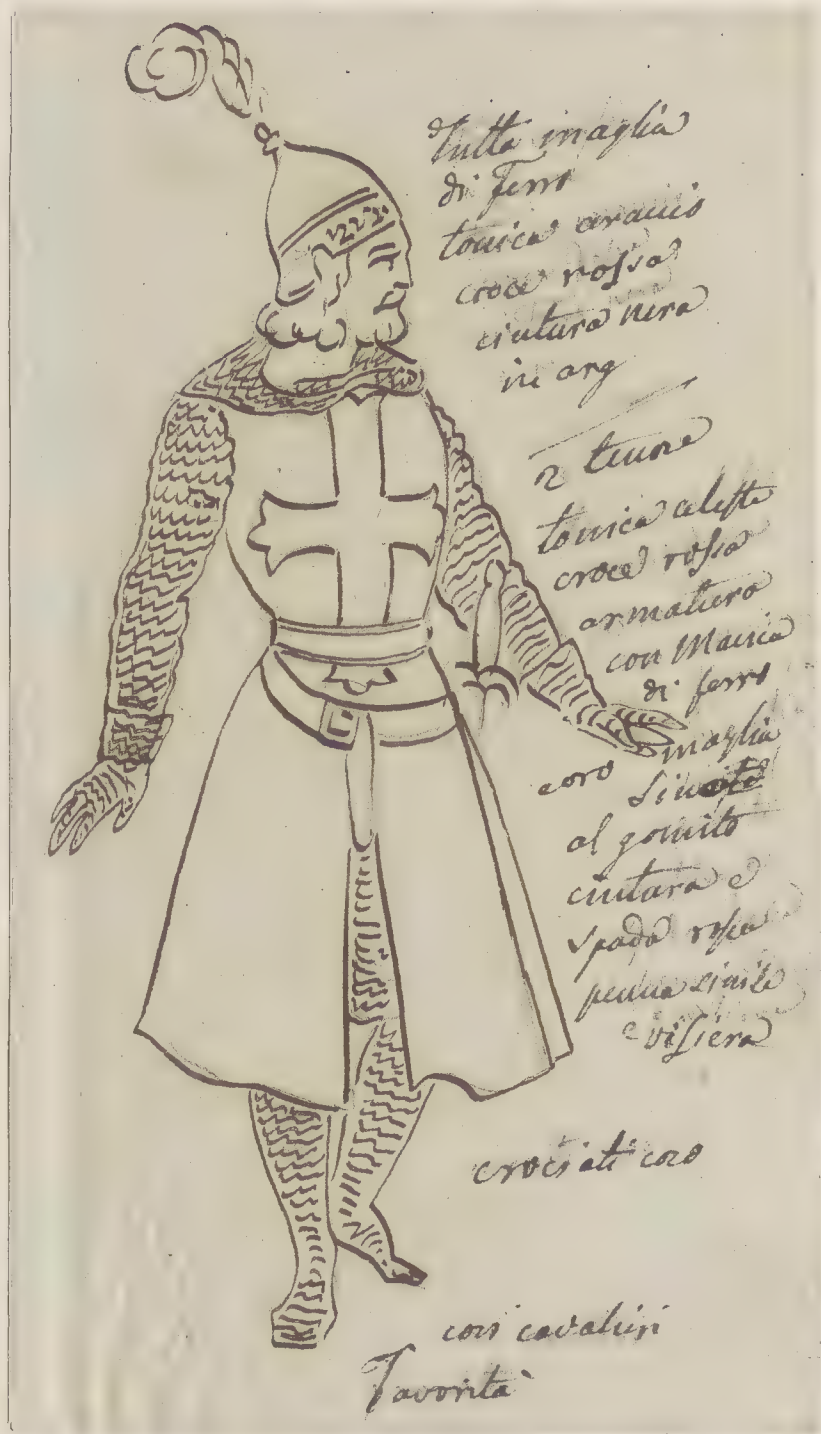 Tutta maglia
di ferro
tonica arancio
croce rossa
cintura nera
in arg
2 tenore
tonica celeste
croce rossa
armatura
con Manica
di ferro
coro maglia
al gomito
cintura e
spada rossa
penna simile
e visiera
crociati coro
cori cavalieri
Favorita